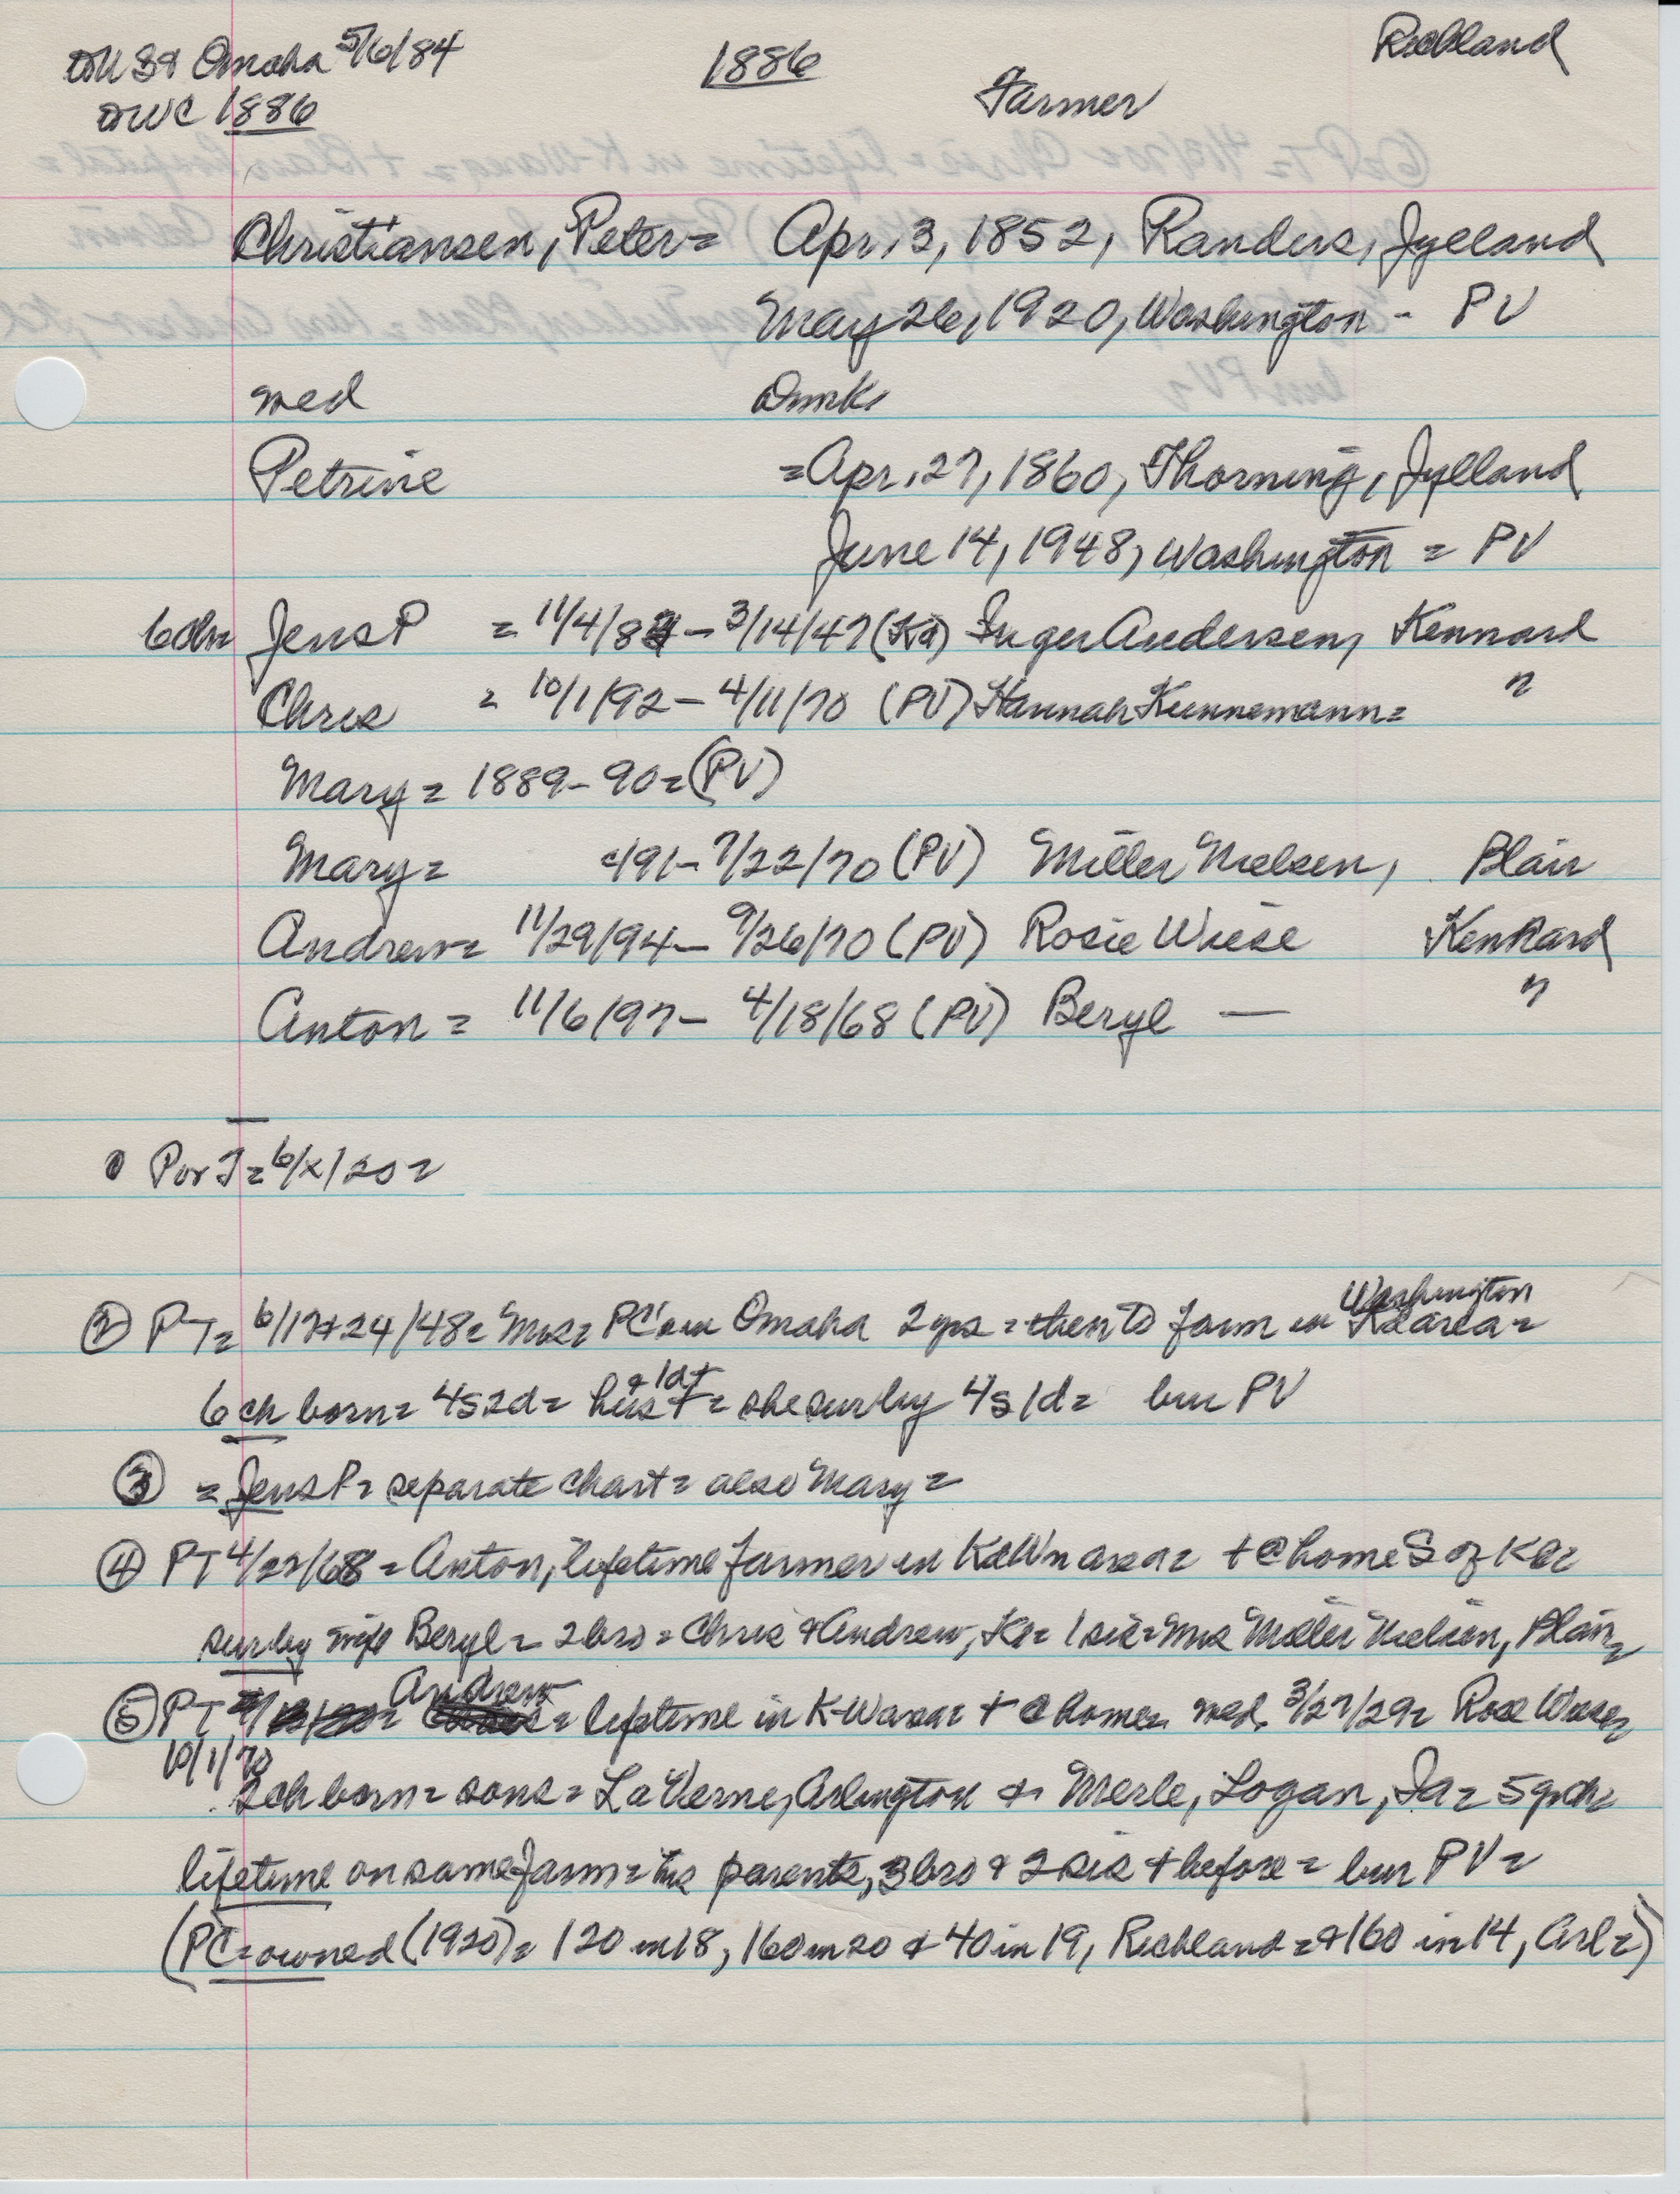 Omaha 5/6/84
1886
Richland
DWC 1886
Farmer
Christiansen, Peter = Apr. 3, 1852, Randers, Jylland
May 26, 1920, Washington - PV
med Dmk
Petrine = Apr. 27, 1860, Thorning, Jylland
June 14, 1948, Washington = PV
6 ch = Jens P = 11/4/8 - 3/14/47 (Kd) Inger Andersen, Kennard
Chris = 10/1/92 - 4/11/70 (PV) Hannah Kunnemann = "
Mary = 1889 - 90 = (PV)
Mary = 91 - 7/22/70 (PV) Miller Nielsen, Blair
Andrew = 11/29/94 - 9/26/70 (PV) Rosie Wiese Kennard
Anton = 11/6/97 - 4/18/68 (PV) Beryl — "
P or T = 6/x/20 =
② PT = 6/17+24/48 = Mrs = PC in Omaha 2 yrs = then to farm in Washington area =
6 ch born = 4s 2d = hus + 1d + = she sur by 4s 1d = bur PV
③ = Jens P = separate chart = also Mary =
④ PT 4/22/68 = Anton, lifetime farmer in Kd Wn area = + @ home S of Kd =
sur by wife Beryl = 2 bro = Chris & Andrew, Kd = 1 sis = Mrs Miller Nielsen, Blair =
⑤ PT Andrew = lifetime in K-W area = + @ home = med. 3/27/29 = Rose Wiese =
10/1/70
2 ch born = sons = LaVerne, Arlington & Merle, Logan, Ia = 5 gch =
lifetime on same farm = his parents, 3 bro & 2 sis + before = bur PV =
(PC = owned (1920) = 120 in 18, 160 in 20 & 40 in 19, Richland = & 160 in 14, Arl =)